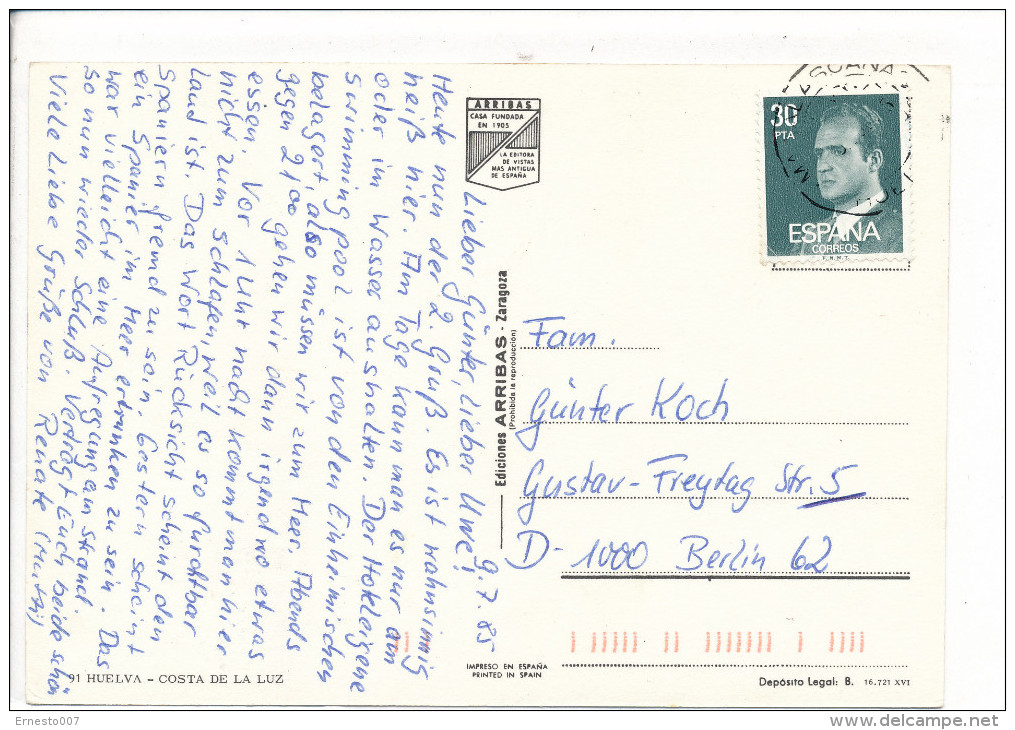 9.7.85
Lieber Günter, lieber Uwe!
Heute nun der 2. Gruß. Es ist wahnsinnig
heiß hier. Am Tage kann man es nur am
oder im Wasser aushalten. Der Hoteleigene
Swimmingpool ist von den Einheimischen
belagert, also müssen wir zum Meer. Abends
gegen 21 00 gehen wir dann irgendwo etwas
essen. Vor 1 Uhr nachts kommt man hier
nicht zum schlafen, weil es so furchtbar
laut ist. Das Wort Rücksicht scheint den
Spaniern fremd zu sein. Gestern scheint
ein Spanier im Meer ertrunken zu sein. Das
war vielleicht eine Aufregung am Strand.
So nun wieder Schluß. Vertragt Euch beide schön
Viele liebe Grüße von Renate (Mutti)
ARRIBAS
CASA FUNDADA
EN 1905
LA EDITORA
DE VISTAS
MAS ANTIGUA
DE ESPAÑA
Ediciones ARRIBAS - Zaragoza
(Prohibida la reproducción)
30
PTA
ESPAÑA
CORREOS
F.N.M.T.
Fam.
Günter Koch
Gustav-Freytag Str. 5
D-1000 Berlin 62
91 HUELVA - COSTA DE LA LUZ
IMPRESO EN ESPAÑA
PRINTED IN SPAIN
Depósito Legal: B. 16.721 XVI
Ernesto007
www.delcampe.net